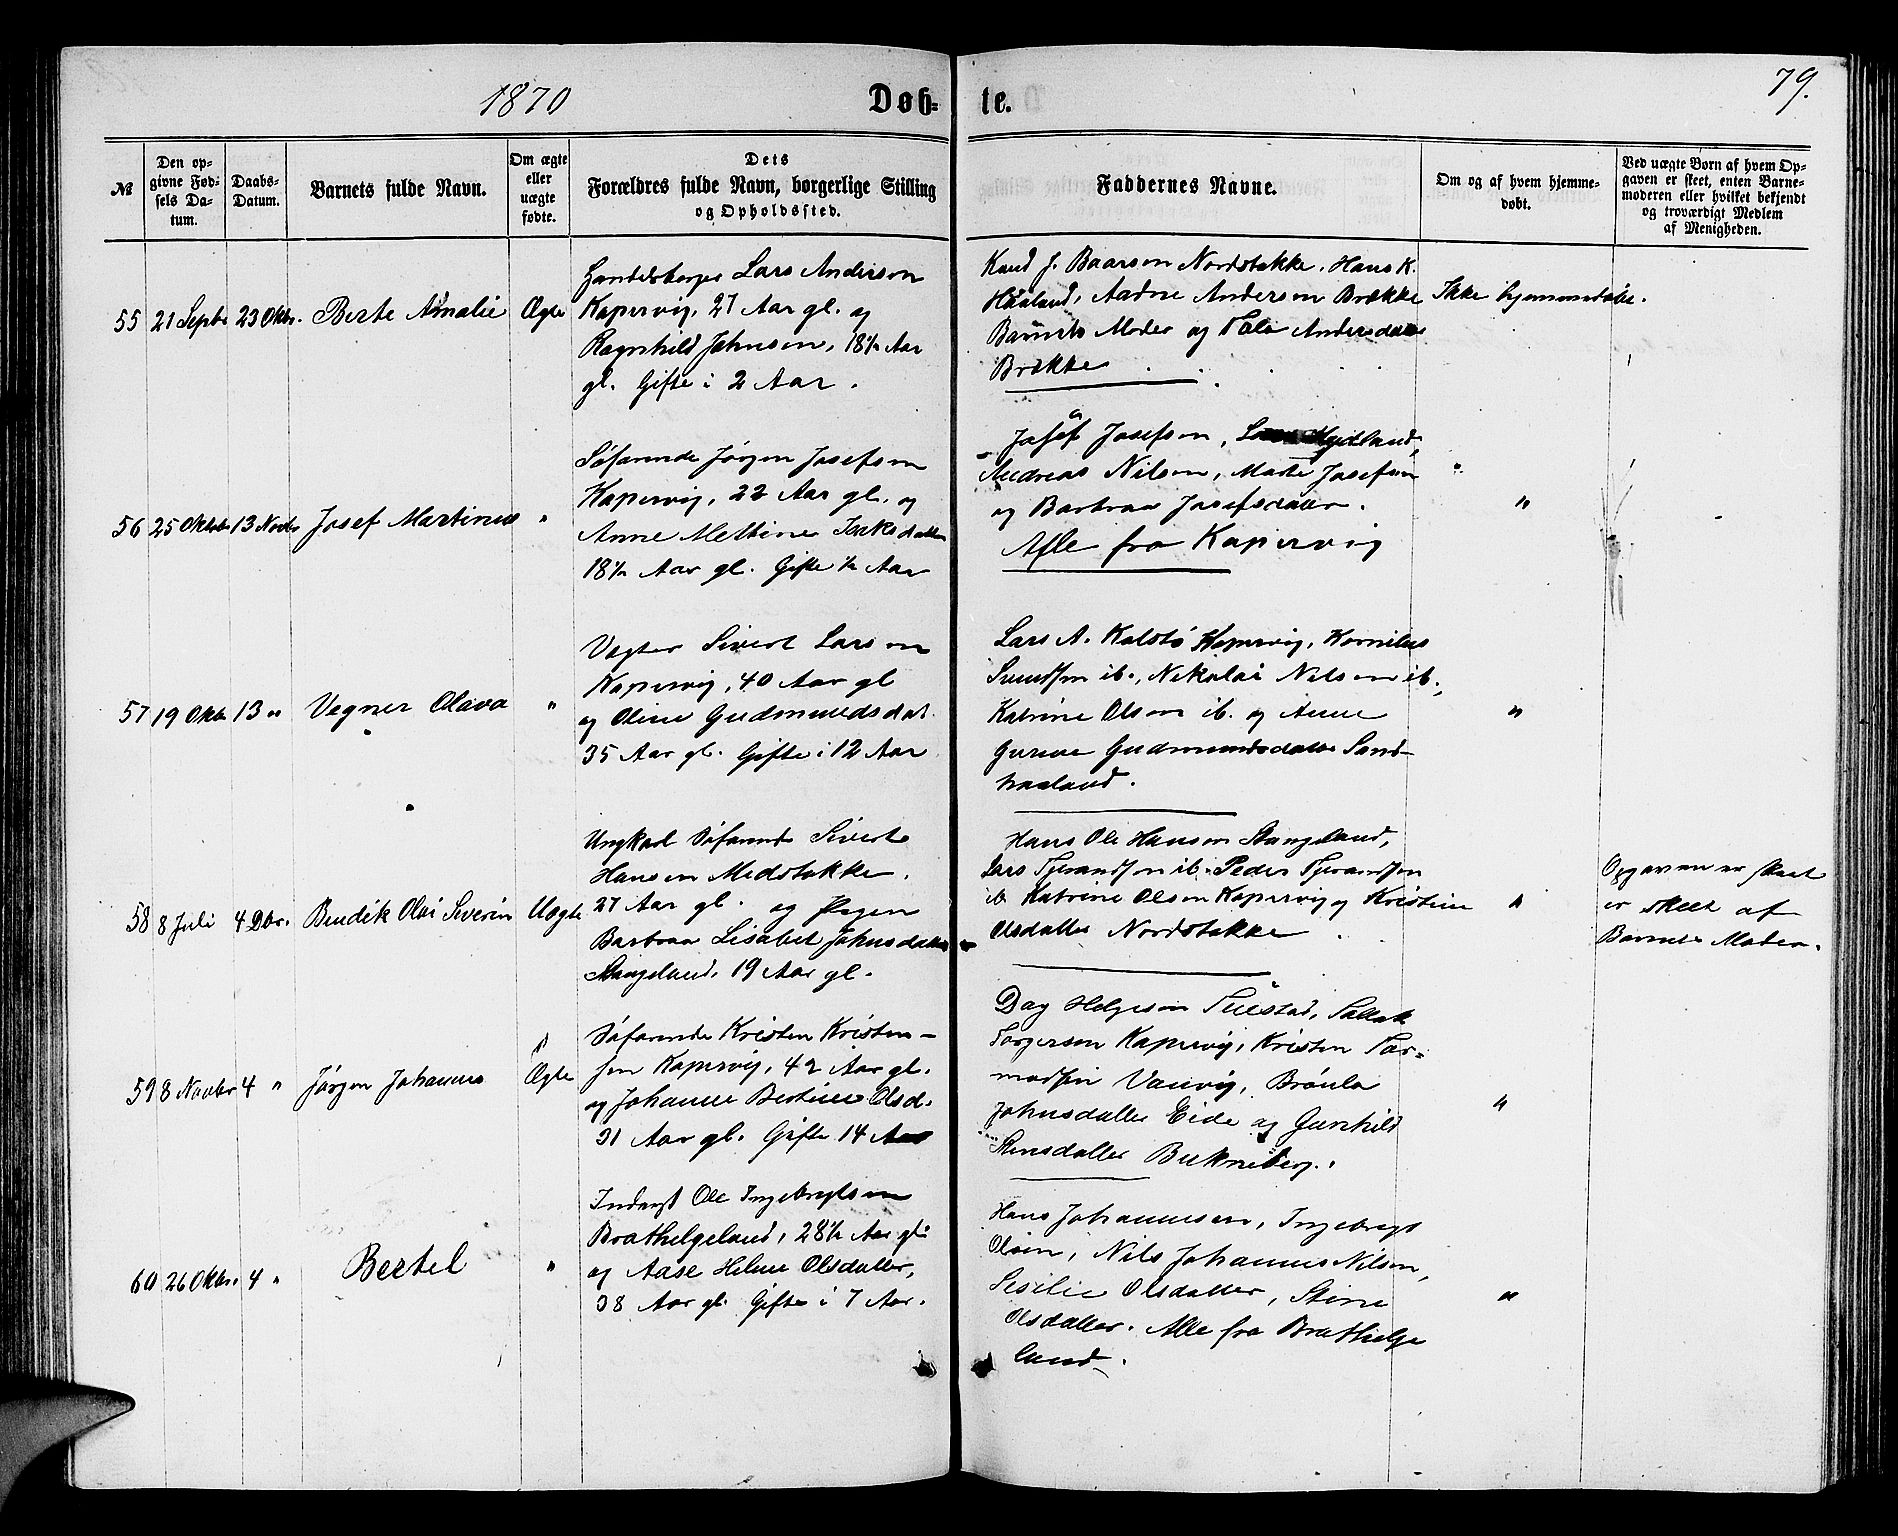 1870
Døb-
te.
79.
№
Den op-
givne Fød-
sels Da-
tum.
Daabs-
Datum.
Barnets fulde Navn.
Om ægte
eller
uægte
fødte.
Dets
Forældres fulde Navn, borgerlige Stilling
og Opholdssted.
Faddernes Navne.
Om og af hvem hjemme-
døbt.
Ved uægte Børn af hvem Op-
gaven er skeet, enten Barne-
moderen eller hvilket bekjendt
og troværdigt Medlem
af Menigheden.
55 21 Septb 23 Oktr. Berte Amalie Ægte
Handelsborger Lars Anderson
Kopervig, 27 Aar gl. og
Ragnhild Johnson, 18½ Aar
gl. Gifte i 2 Aar.
Knud J. Baarson Nordstokke. Hans K.
Haaland, Aadne Anderson Brække
Barnets Moder og Andersdatter
Brække
Ikke hjemmedøbt.
56 25 Oktob 13 Novbr Josef Martinus "
Søfarende Jørgen Josefson
Kopervig, 22 Aar gl. og
Anne Mettine Isaksdatter
18½ Aar gl. Gifte ½ Aar
Josef Josefson, Hydland,
Andreas Nilson, Marte Josefson
og Barbraa Josefsdatter.
Alle fra Kopervig
"
57 19 Oktb 13 " Vegner Olava "
Vegter Sivert Larson
Kopervig, 40 Aar gl
og Oline Gudmundsdat.
35 Aar gl. Gifte i 12 Aar
Lars A. Kolstø Kopervig, Kornilius
Svendsen ib., Nikolai Nilson ib.,
Katrine Olson ib. og Anne
Gurine Gudmundsdatter Sand-
haaland.
"
58 8 Juli 4 Dbr. Bendik Olai Severin Uægte
Ungkarl Søfarende Sivert
Hanson Medstokke.
27 Aar gl. og Pigen
Barbraa Lisabet Johnsdatter
Stangeland, 19 Aar gl.
Hans Ole Hanson Stangeland,
Lars Tjerandsen ib. Peder Tjerandsen
ib. Katrine Olson Kopervig og Kristine
Olsdatter Nordstokke.
"
Opgaven er skeet
er skeet af
Barnets Moder.
59 8 Novbr 4 " Jørgen Johannes Ægte
Søfarende Kristen Kristen-
sen Kopervig, 42 Aar gl.
og Johanne Bertine Olsd.
31 Aar gl. Gifte 14 Aar
Dag Helgeson Sallak
Torgerson Kopervig, Kristen Tor-
modsen Vanvig, Brønla
Johnsdatter Eide og Gunhild
Stensdatter Bukneberg.
"
60 26 Oktbr. 4 " Bertel "
Inderst Ole Ingebregtson
Brathelgeland, 28½ Aar gl.
og Aase Helene Olsdatter,
38 Aar gl. Gifte i 7 Aar.
Hans Johannesen, Ingebregt
Olson, Nils Johannes Nilson,
Sesilie Olsdatter, Stine
Olsdatter. Alle fra Brathelge
land.
"